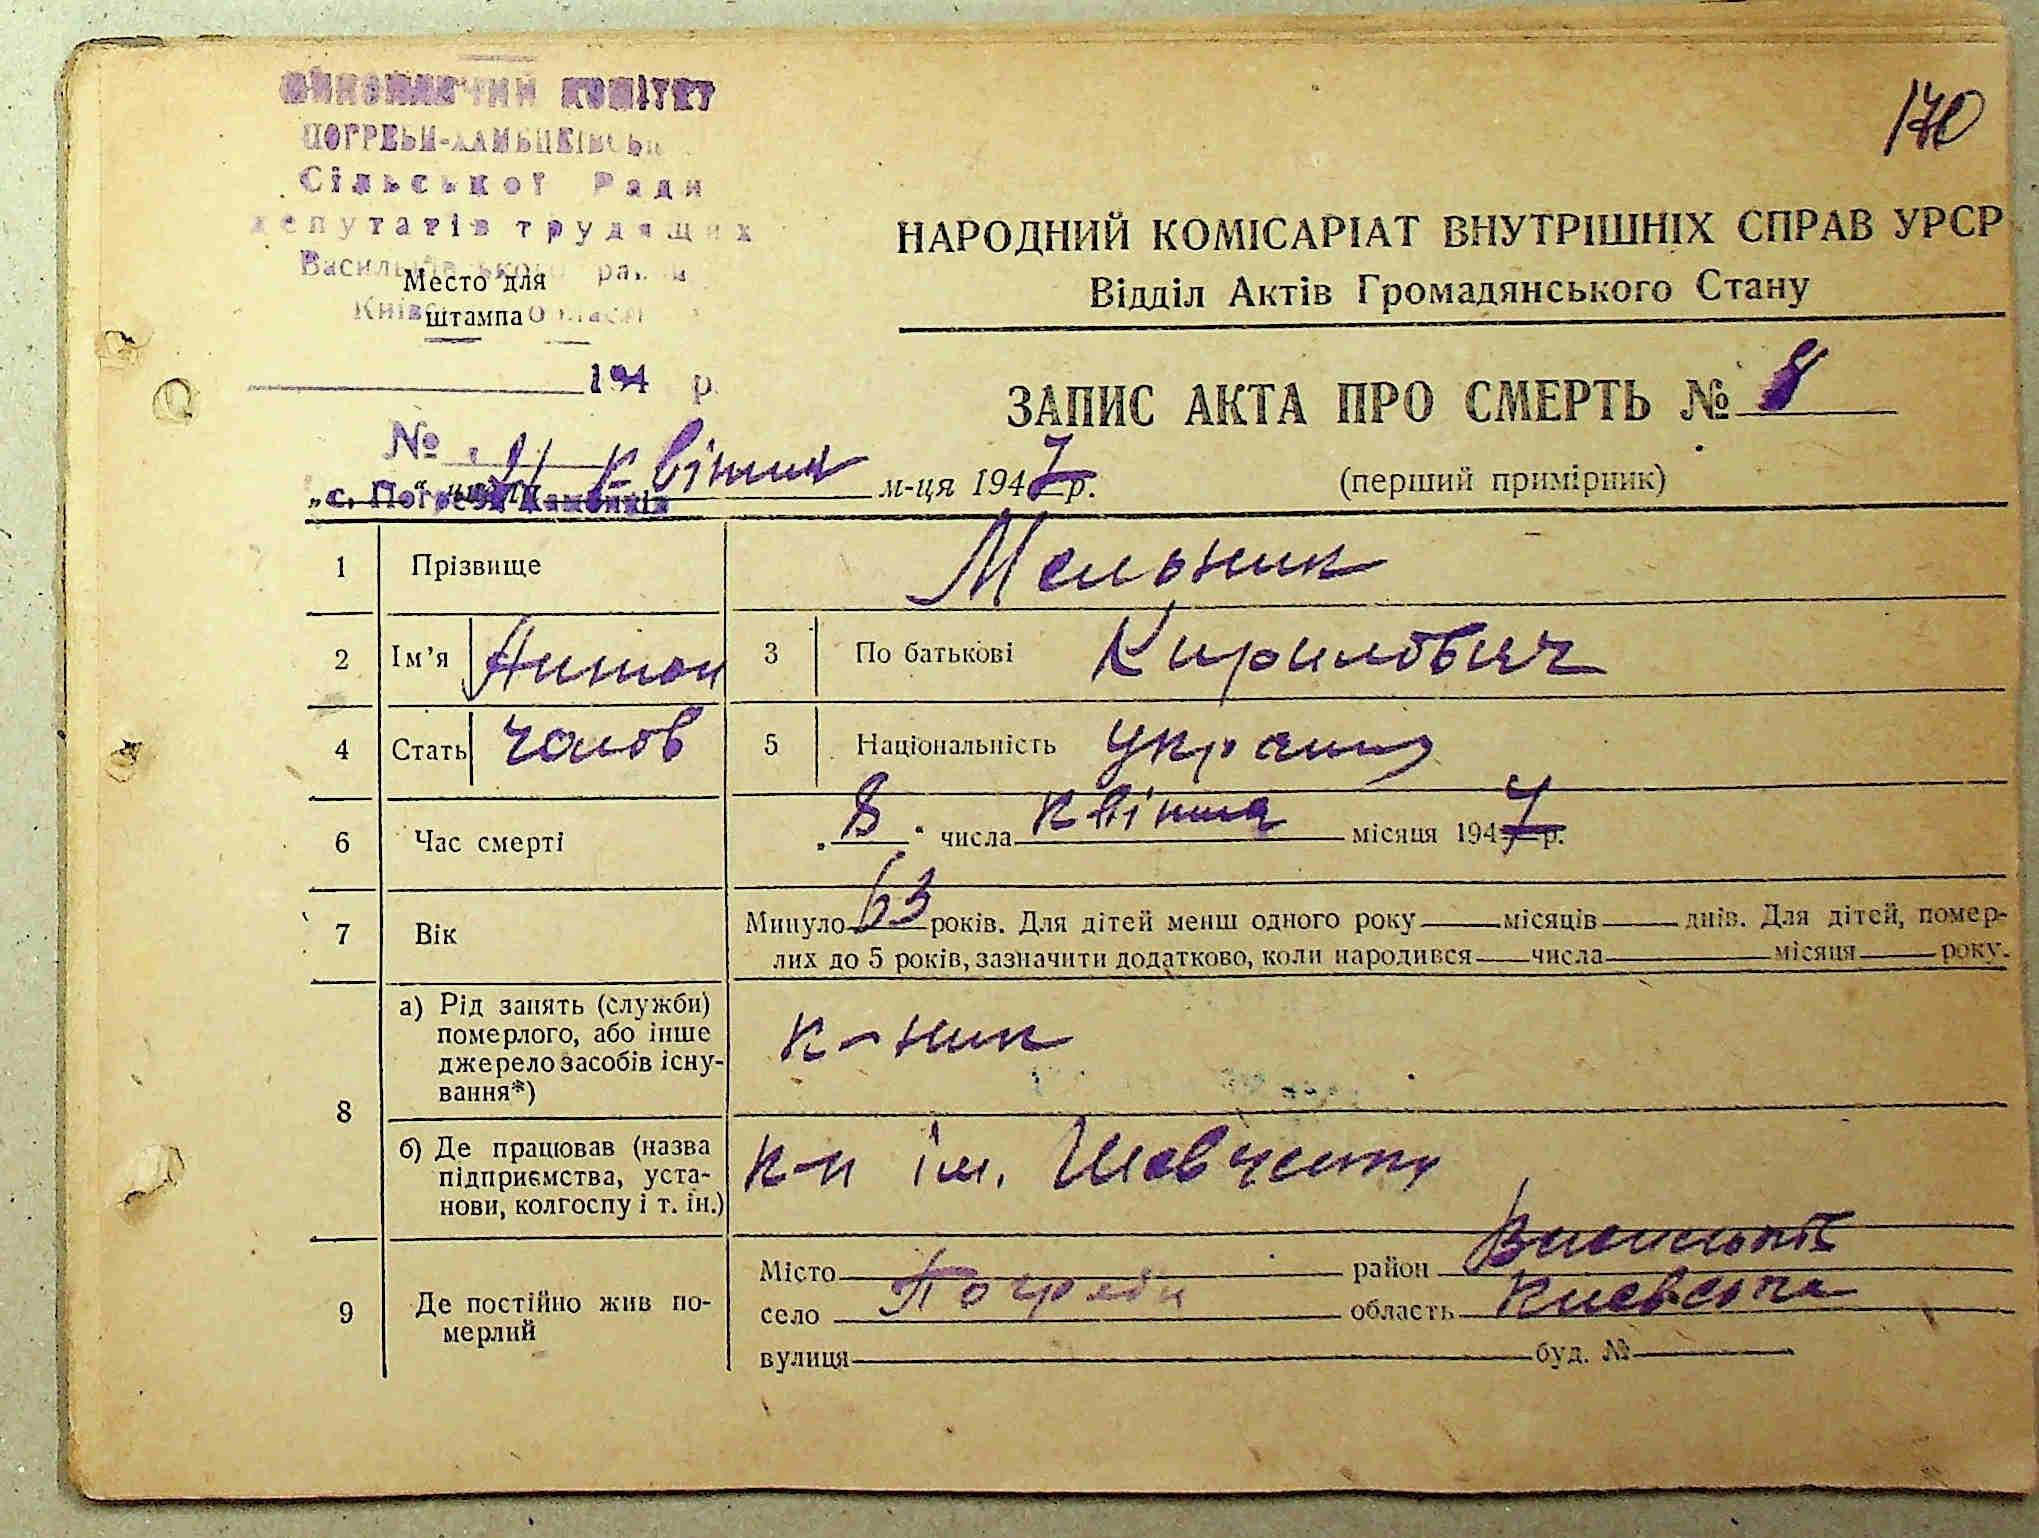 ВИКОНАВЧИЙ КОМІТЕТ
Сільської Ради
депутатів трудящих
Васильківського району
Київської області
Место для
штампа
194 р.
№
170
НАРОДНИЙ КОМІСАРІАТ ВНУТРІШНІХ СПРАВ УРСР
Відділ Актів Громадянського Стану
ЗАПИС АКТА ПРО СМЕРТЬ № 8
(перший примірник)
квітня м-ця 1947 р.
1 Прізвище Мельник
2 Ім’я Антон 3 По батькові Кирилович
4 Стать чолов 5 Національність україн
6 Час смерті „8“ числа квітня місяця 1947 р.
7 Вік Минуло 63 років. Для дітей менш одного року місяців днів. Для дітей, помер-
лих до 5 років, зазначити додатково, коли народився числа місяця року.
8 а) Рід занять (служби)
померлого, або інше
джерело засобів існу-
вання*)
к-ник
б) Де працював (назва
підприємства, уста-
нови, колгоспу і т. ін.)
к-п ім. Шевченка
9 Де постійно жив по-
мерлий
Місто район Васильків
село Погреби область Киевська
вулиця буд. №